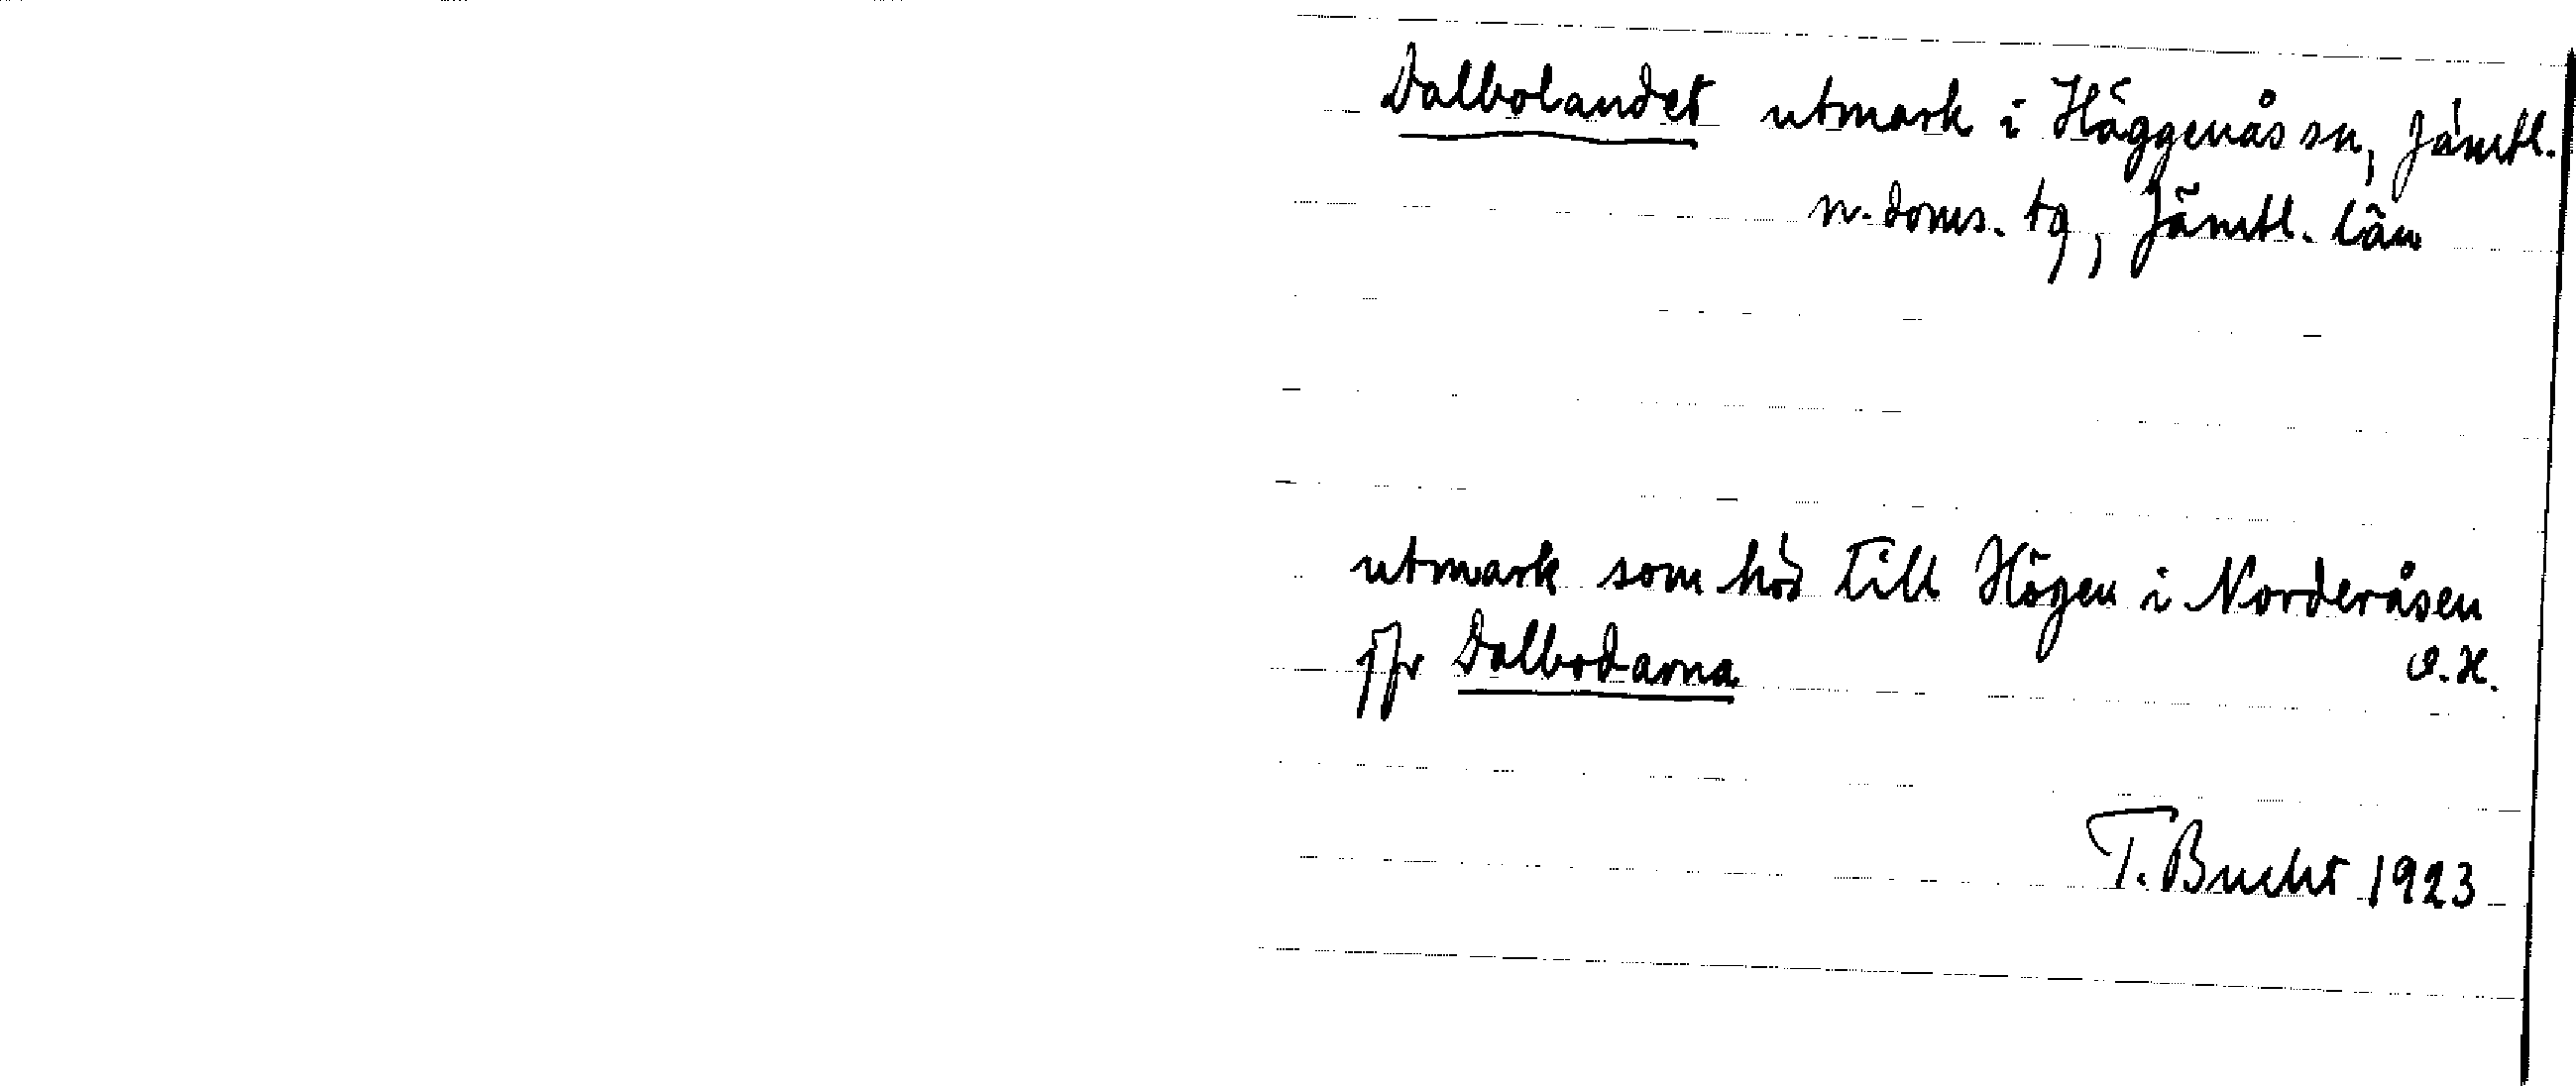 Dalbolandet utmark i Häggenås sn, Jämtl.
n. doms. tg, Jämtl. län
utmark som hör till Högen i Norderåsen
jfr Dalbodarna O.H.
T. Bucht 1923